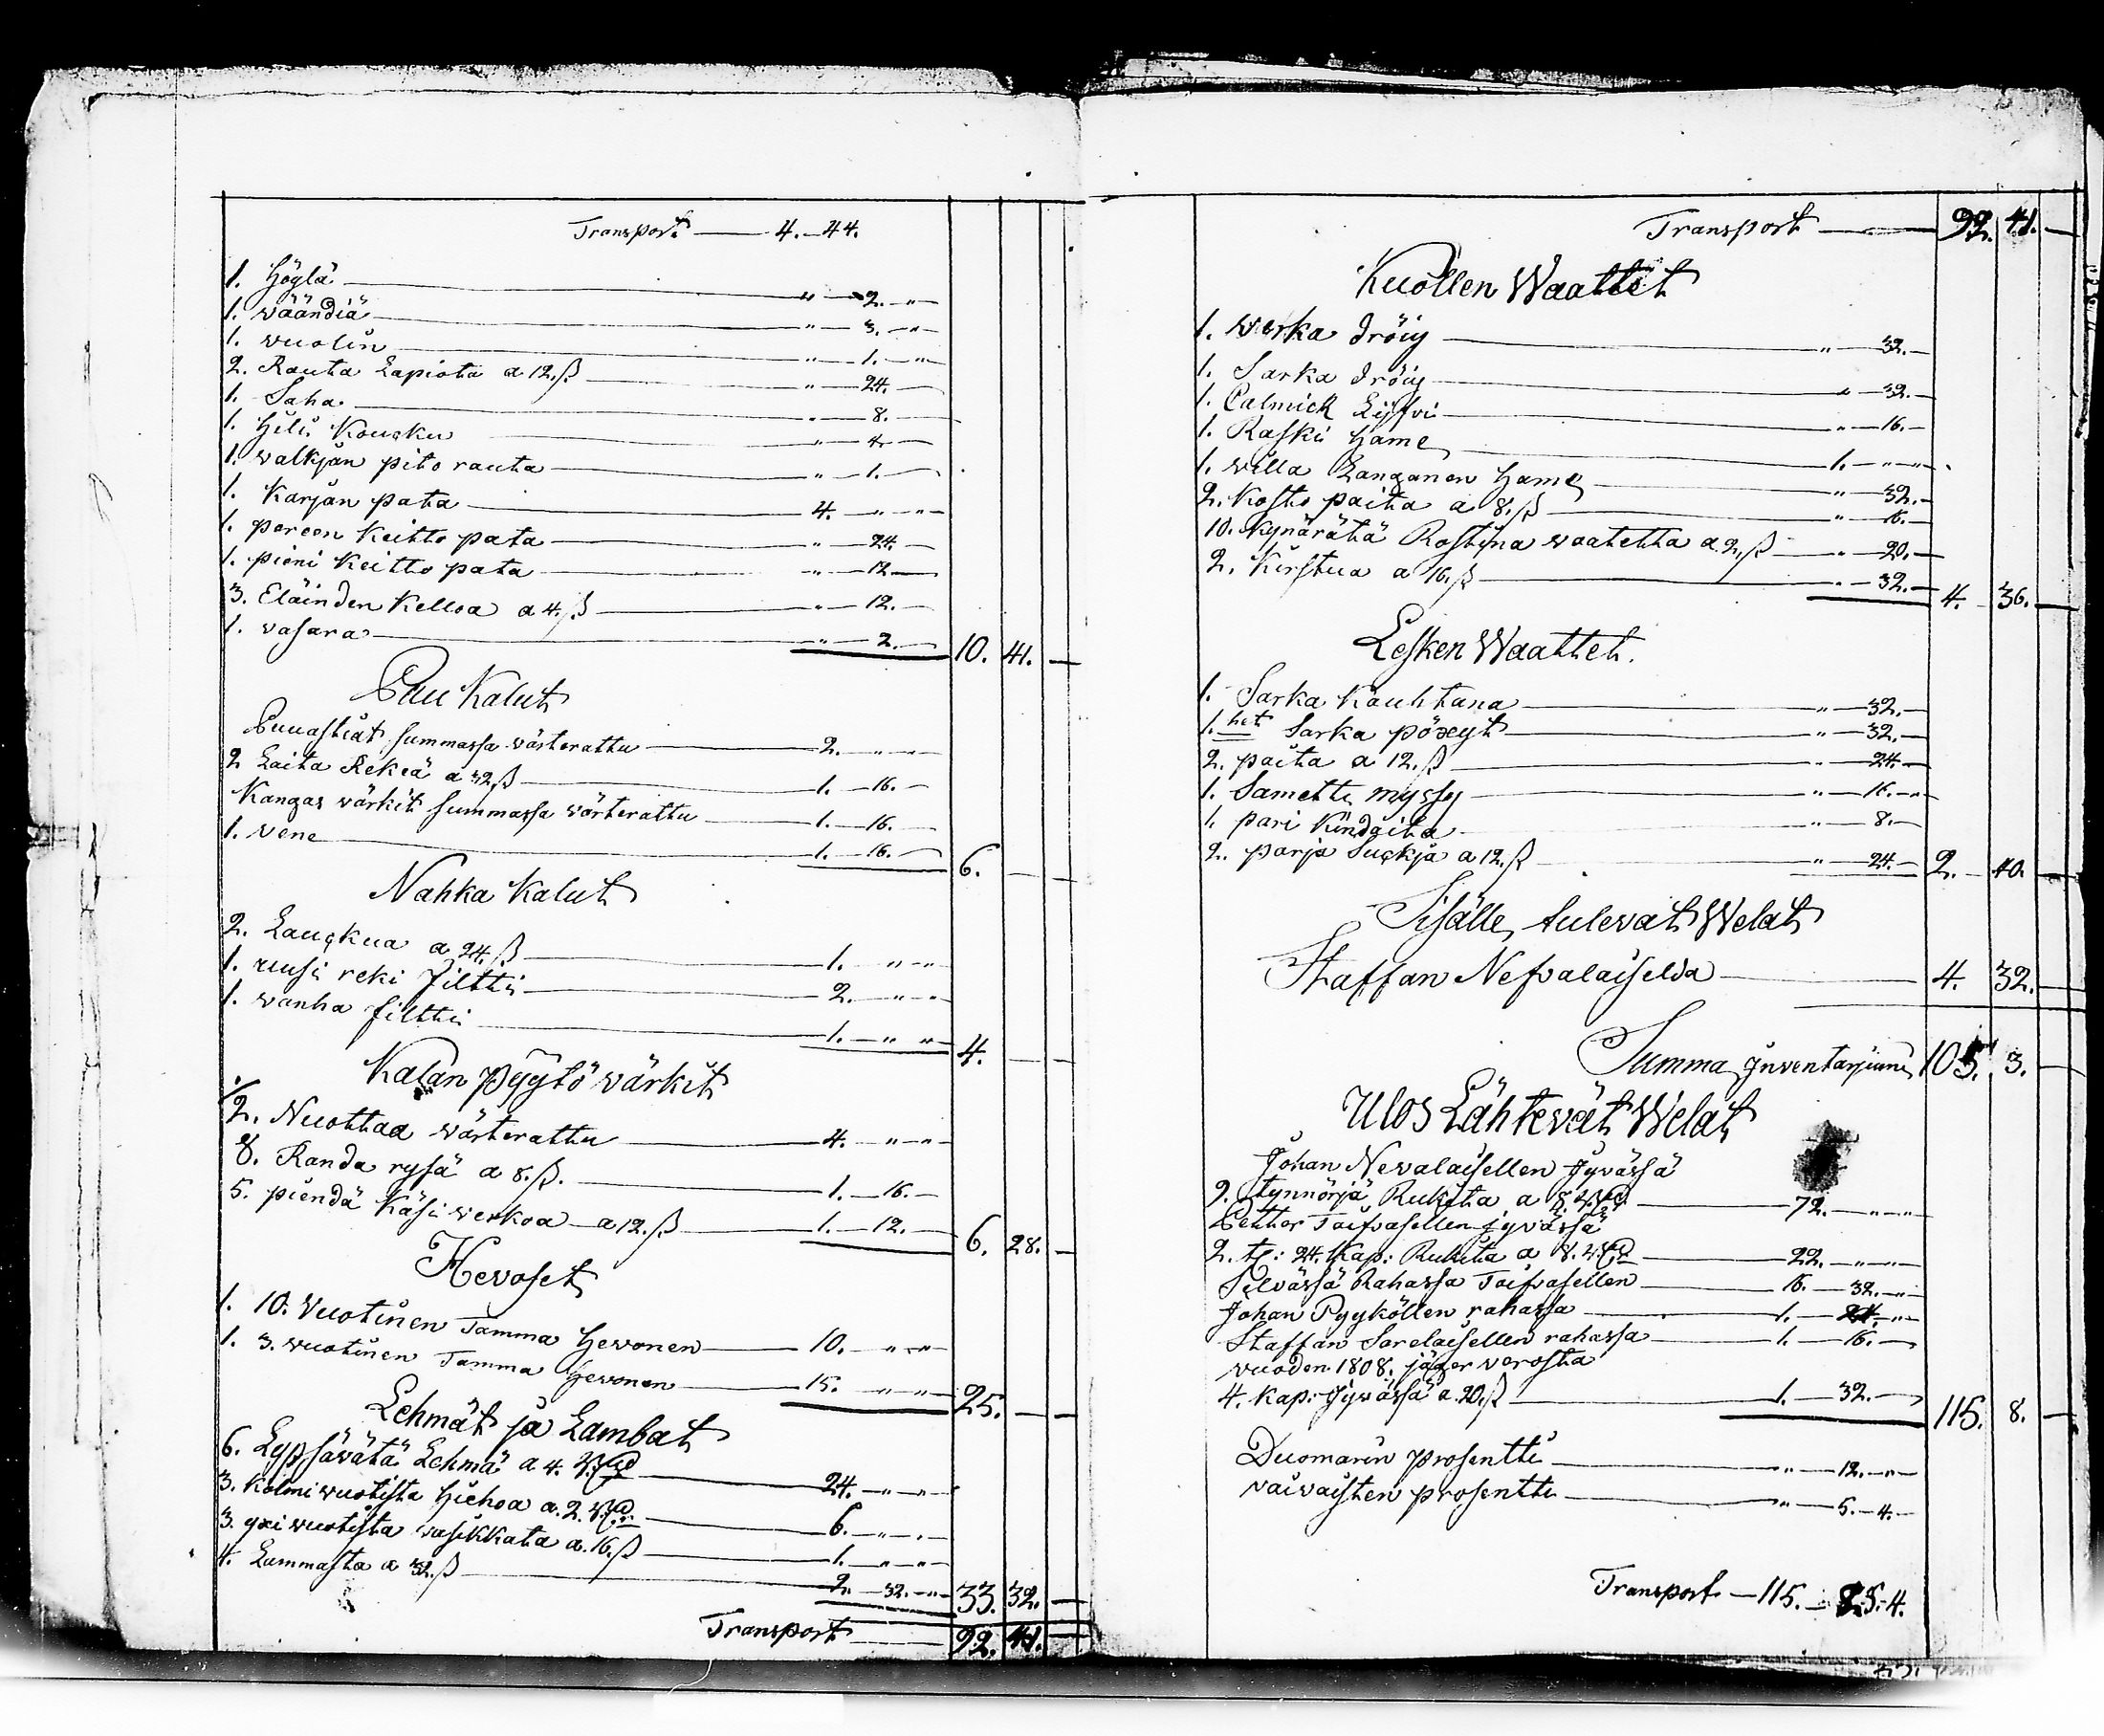 Transport — 4. — 44.
1. Höylä — " — 2. — "
1. wäändiä — " — 3. — "
1. vuolin — " — 1. — "
2. Rauta Lapiota a 12. ß — " — 24. —
1. Saha — " — 8. —
1. Hili Koucku — " — 4. —
1. walkjan pito rauta — " — 1. —
1. Karjan pata — 4. — " — "
1. pereen Keitto pata — " — 24. —
1. pieni Keitto pata — " — 12. —
3. Eläinden Kelloa a 4. ß — " — 12. —
1. vasara — " — 2. — 10. 41. —
Puu Kalut
Puuastiat summassa värterattu — 2. — " — "
2 Laita Rekeä a 32 ß — 1. — 16. —
Kangas värkit summassa värterattu — 1. — 16. —
1. Vene — 1. — 16. — 6. — —
Nahka Kalut
2. Lauckua a 24. ß — 1. — " — "
1. uusi reki filtti — 2. — " — "
1. vanha filtti — 1. — " — " 4. — —
Kalan pyytö värkit
1/2. Nuottaa värterattu — 4. — " — "
8. Randa rysä a 8. ß. — 1. — 16. —
5. piendä Käsi verkoa a 12. ß — 1. — 12. — 6. 28. —
Hevoset
1. 10. Vuotinen Tamma Hevonen — 10. — " — "
1. 3. vuotinen Tamma hevonen — 15. — " — " 25. — —
Lehmät ja Lambat
6. Lypsävätä Lehmä a 4. — 24. — " — "
3. Kolmi vuotista Hiehoa a. 2. — 6. — " — "
3. yxi vuotista vasikkata a. 16. ß — 1. — " — "
4. Lammasta a 32. ß — 2. — 32. — " 33. 32. —
Transport — 92. 41. —
Transport — 92. 41. —
Kuollen Waattet
1. Werka dröiy — " — 32. —
1. Sarka dröiy — " — 32. —
1. Calmick Lijfvi — " — 16. —
1. Raski Hame — 1. — " — "
1. willa Langanen Hame — " — 32. —
2. Kosto paita a 8. ß — " — 16. —
10. Kynärätä Rostina vaatetta a. 2. ß — " — 20. —
2. Kirstua a 16. ß — " — 32. — 4. 36. —
Lesken Waattet.
1. Sarka Kauhtana — " — 32. —
1. het Sarka pöxyt — " — 32. —
2. paita a 12. ß — " — 24. —
1. Sametti myssy — " — 16. — "
1. pari Kindaita — " — 8. —
2. parja Suckja a 12. ß — " — 24. — 2. 40. —
Sisälle tulevat Welat
Staffan Nefvalaiselda — 4. 32. —
Summa Inventarjumi 105. 3. —
Ulos Lähtevät Welat
Johan Nevalaisellen Jyvässä
9. tynnörjä Rukita a 8. — 72. — " — "
Petter Toifvasellen jyvässä
2. tr: 24. Kap: Rukita a 8. — 22. — " — "
Selvässä Rahassa Toifvasellen — 16. — 32. — "
Johan Pyyköllen rahassa — 1. — 24. — "
Staffan Sarelaisellen rahassa — 1. — 16. —
vuoden 1808. jäger verosta
4. kap: Jyvässä a. 20. ß — 1. — 32. — 115. 8. —
Duomarin prosentti — " — 12. — "
vaivaisten prosentti — " — 5. — 4. —
Transport — 115.